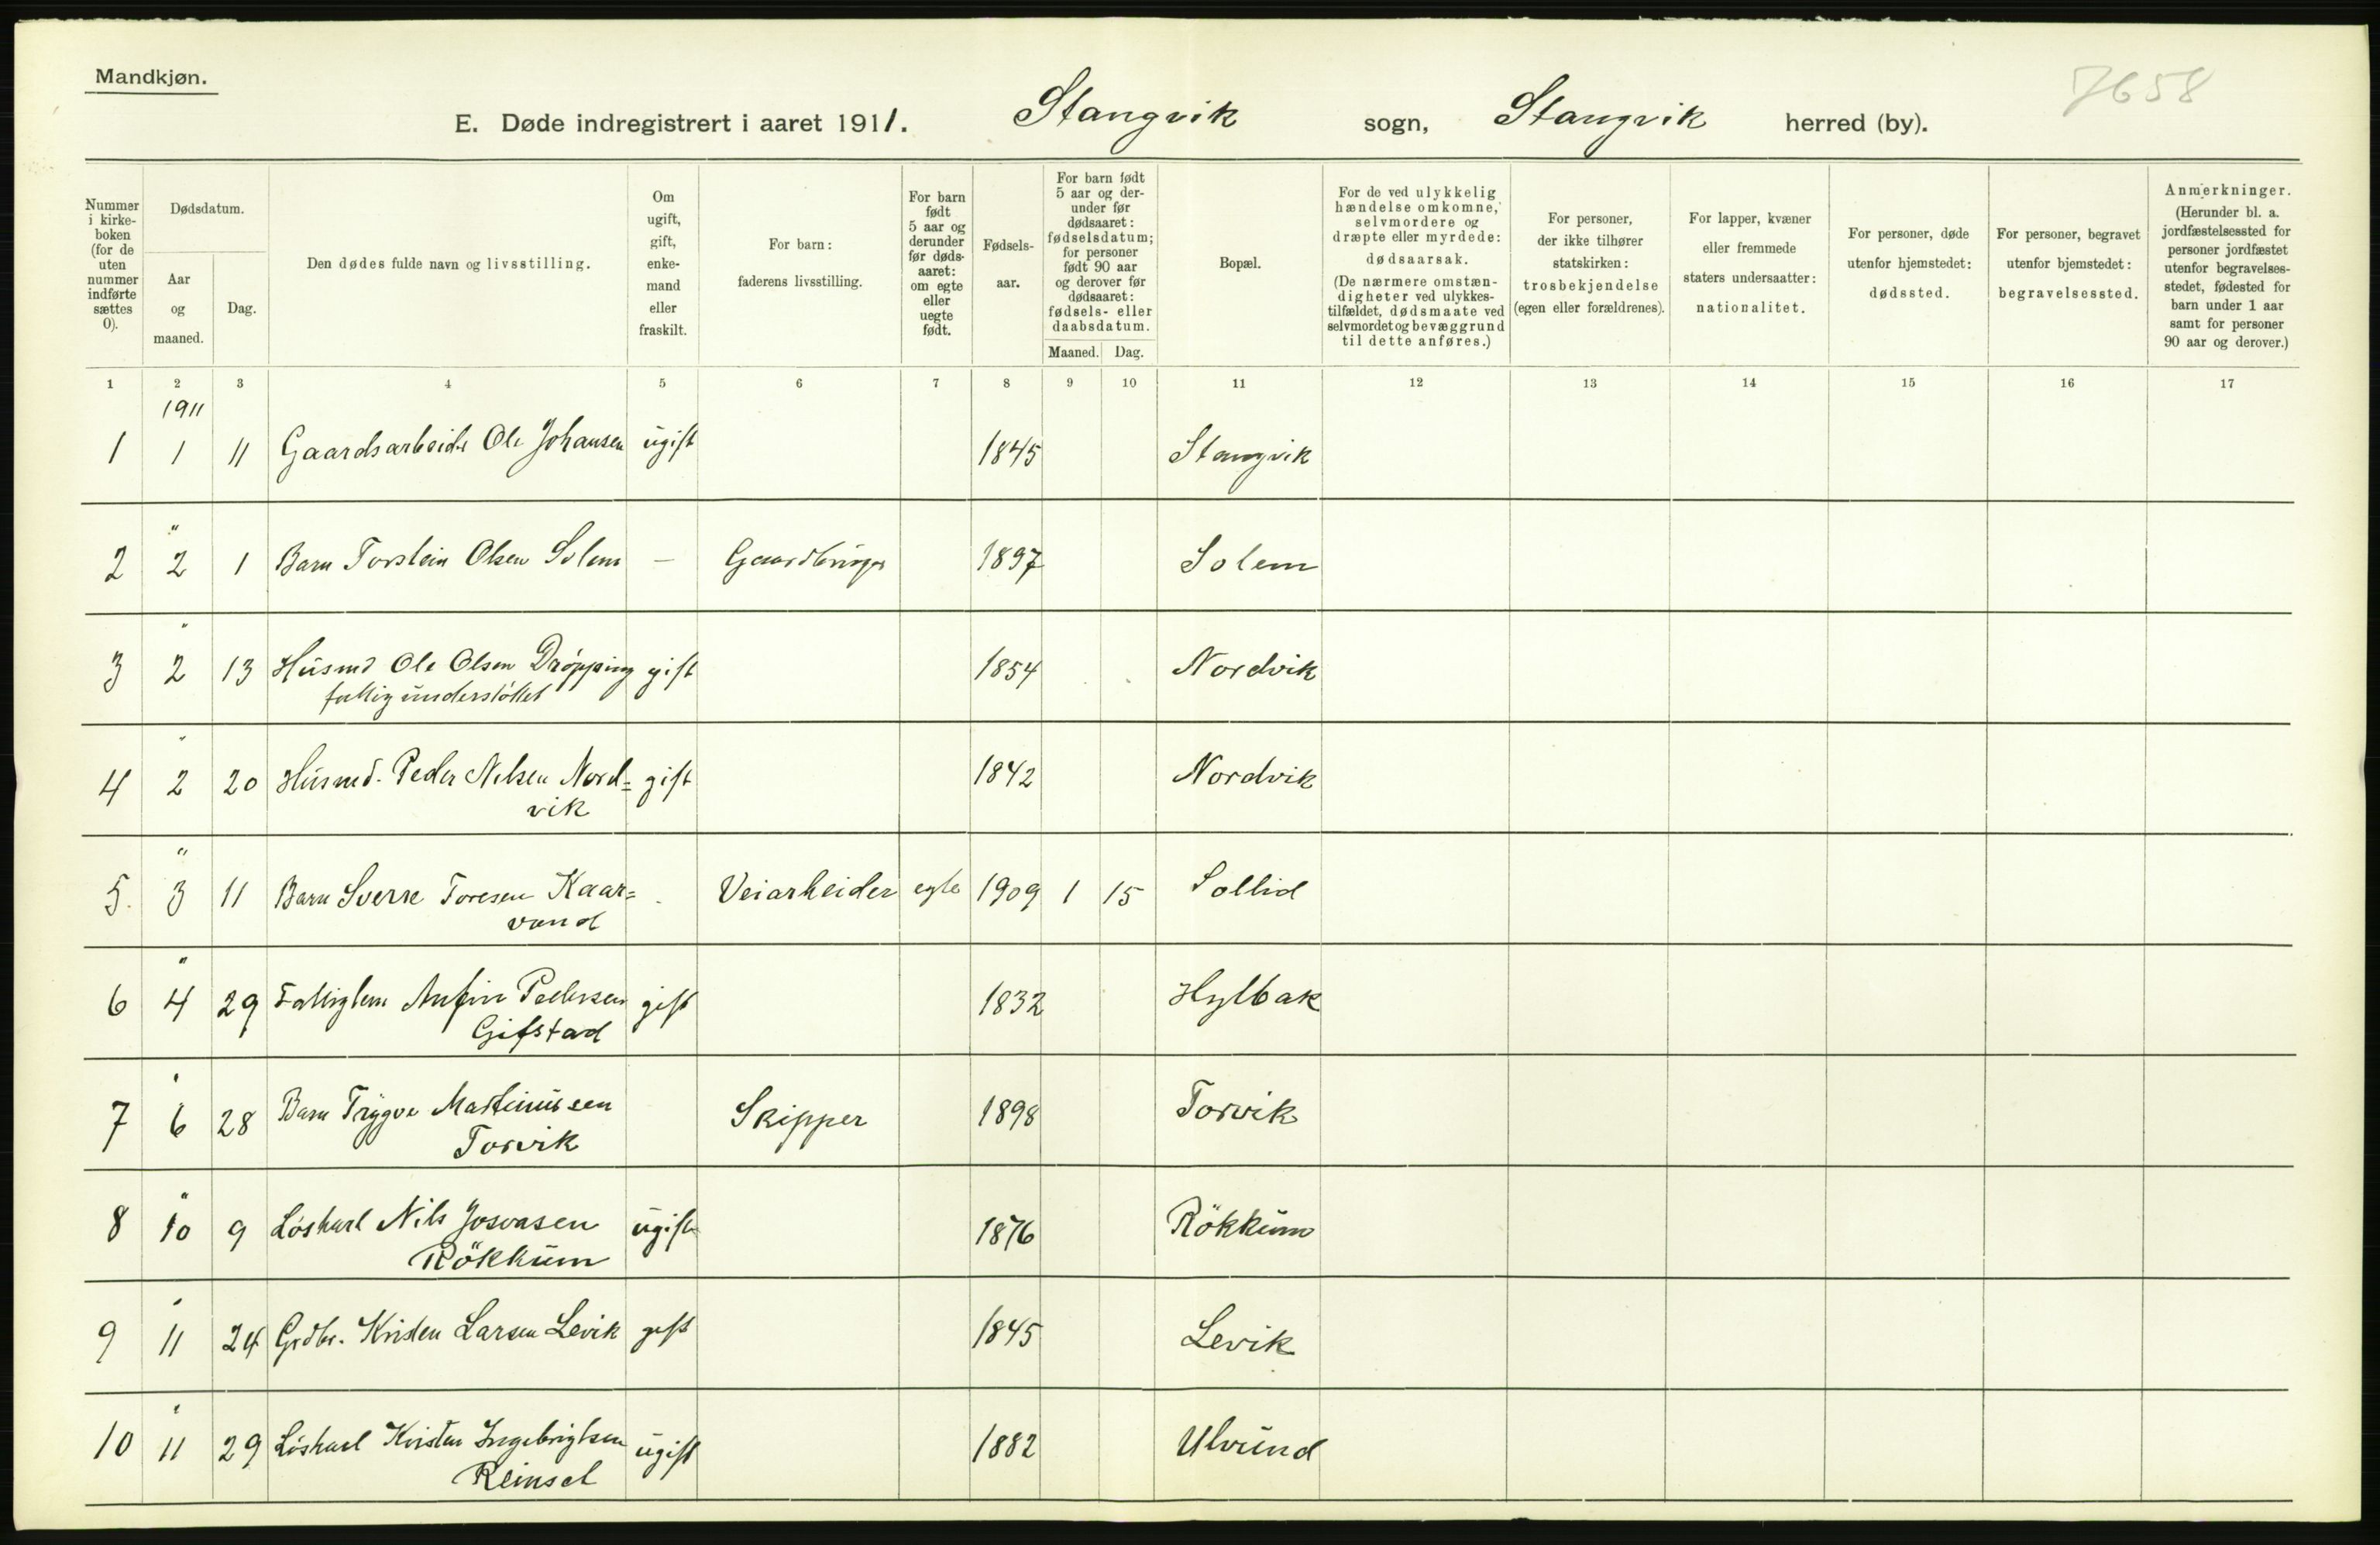 Mandkjøn.
7658
E. Døde indregistrert i aaret 1911. Stangvik sogn, Stangvik herred (by).
Nummer i kirke-boken (for de uten nummer indførte sættes 0).
Dødsdatum.
Aar og maaned.
Dag.
Den dødes fulde navn og livsstilling.
Om ugift, gift, enke-mand eller fraskilt.
For barn: faderens livsstilling.
For barn født 5 aar og derunder før døds-aaret: om egte eller uegte født.
Fødsels-aar.
For barn født 5 aar og der-under før dødsaaret: fødselsdatum; for personer født 90 aar og derover før dødsaaret: fødsels- eller daabsdatum.
Maaned. Dag.
Bopæl.
For de ved ulykkelig hændelse omkomne, selvmordere og dræpte eller myrdede: dødsaarsak. (De nærmere omstæn-digheter ved ulykkes-tilfældet, dødsmaate ved selvmordet og bevæggrund til dette anføres.)
For personer, der ikke tilhører statskirken: trosbekjendelse (egen eller forældrenes).
For lapper, kvæner eller fremmede staters undersaatter: nationalitet.
For personer, døde utenfor hjemstedet: dødssted.
For personer, begravet utenfor hjemstedet: begravelsessted.
Anmerkninger. (Herunder bl. a. jordfæstelsessted for personer jordfæstet utenfor begravelses-stedet, fødested for barn under 1 aar samt for personer 90 aar og derover.)
1 2 3 4 5 6 7 8 9 10 11 12 13 14 15 16 17
1911
1 1 11 Gaardsarbeider Ole Johansen ugift 1845 Stangvik
"
2 2 1 Barn Torstein Olsen Solem — Gaardbruger 1897 Solem
"
3 2 13 Husmd Ole Olsen Drøpping gift 1854 Nordvik
fattigunderstøttet
"
4 2 20 Husmd. Peder Nilsen Nord= gift 1842 Nordvik
vik
"
5. 3 11 Barn Sverre Toresen Kaar= Veiarbeider egte 1909 1 15 Sollid
vand
"
6 4 29 Fattiglem Anfin Pedersen gift 1832 Hylbak
Gifstad
"
7 6 28 Barn Trygve Martinussen Skipper 1898 Torvik
Torvik
"
8 10 9 Løskarl Nils Josvasen ugift 1876 Rökkum
Rökkum
"
9 11 24 Grdbr. Kristen Larsen Levik gift 1845 Levik
"
10 11 29 Løskarl Kristen Ingebrigtsen ugift 1882 Ulvund
Reinsel